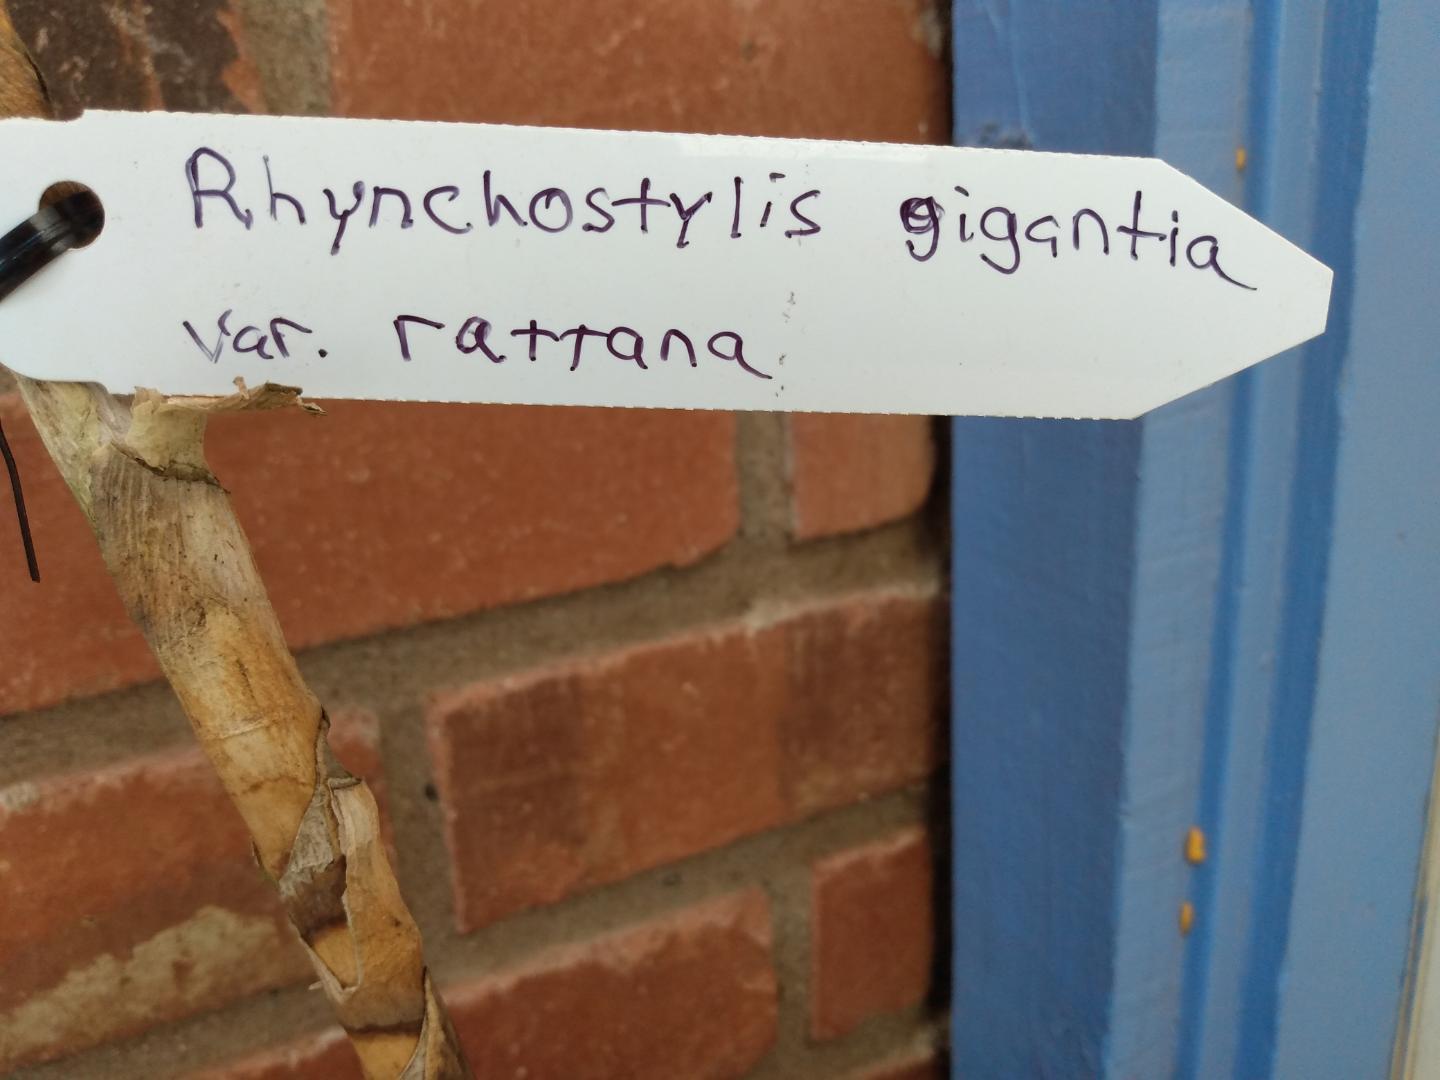 Rhynchostylis gigantia
var. rattana